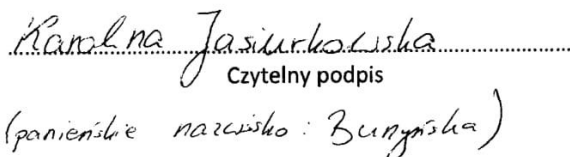 Karolina Jasiurkowska
Czytelny podpis
(panieńskie nazwisko: )